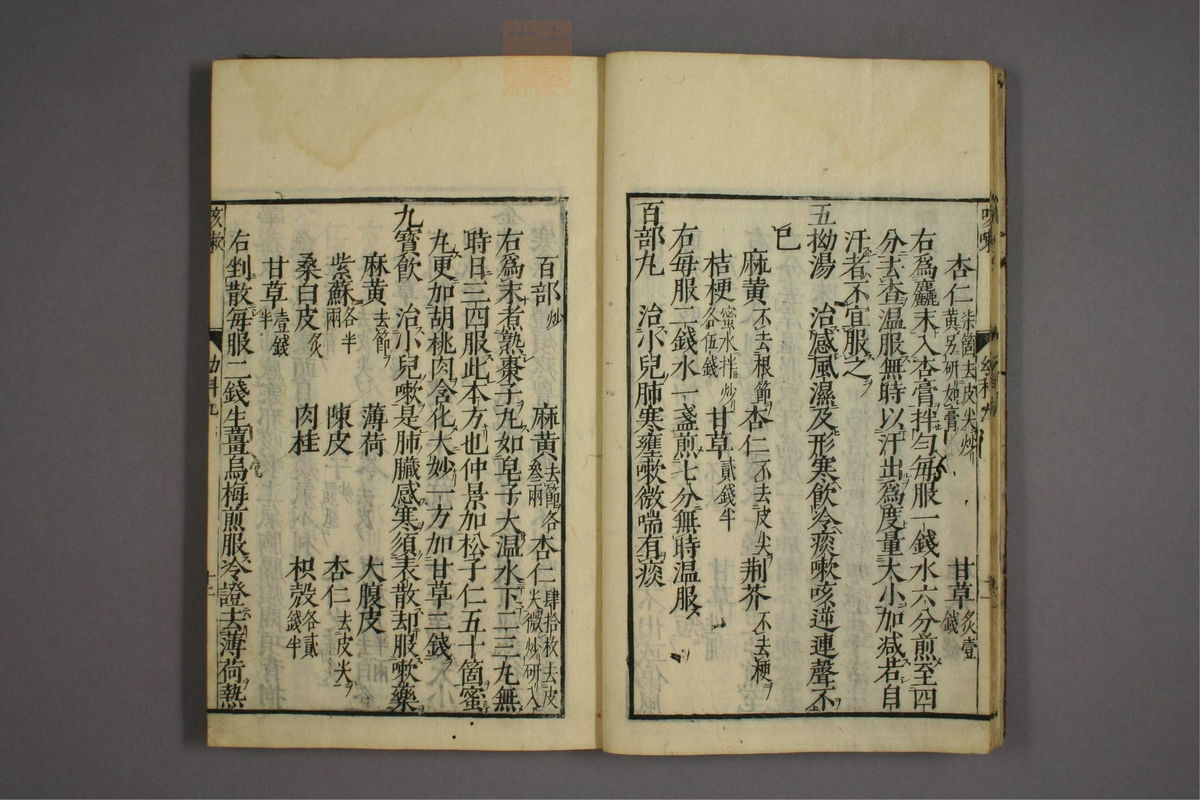 咳嗽
幼科九
杏仁柒箇去皮尖炒黃另研如膏 甘草炙壹錢
右爲麤末入杏膏拌勻每服一錢水六分煎至四
分去渣温服無時以汗出爲度量大小加减若自
汗者不宜服之
五拗湯 治感風濕及形寒飲冷痰嗽咳逆連聲不
已
麻黃不去根節 杏仁不去皮尖 荆芥不去梗
桔梗蜜水拌炒各伍錢 甘草貳錢半
右每服二錢水一盞煎七分無時温服
百部丸 治小兒肺寒壅嗽微喘有痰
百部炒 麻黃去節各叁兩 杏仁肆拾枚去皮尖微炒研入
右爲末煮熟棗子丸如皂子大温水下二三丸無
時日三四服此本方也仲景加松子仁五十箇蜜
丸更加胡桃肉含化大妙一方加甘草二錢
九寳飲 治小兒嗽是肺臟感寒須表散却服嗽藥
麻黃去節 薄荷 大腹皮
紫蘇各半兩 陳皮 杏仁去皮尖
桑白皮炙 肉桂 枳殼各貳錢半
甘草壹錢半
右剉散每服二錢生薑烏梅煎服冷證去薄荷熱
咳嗽
幼科九
十二